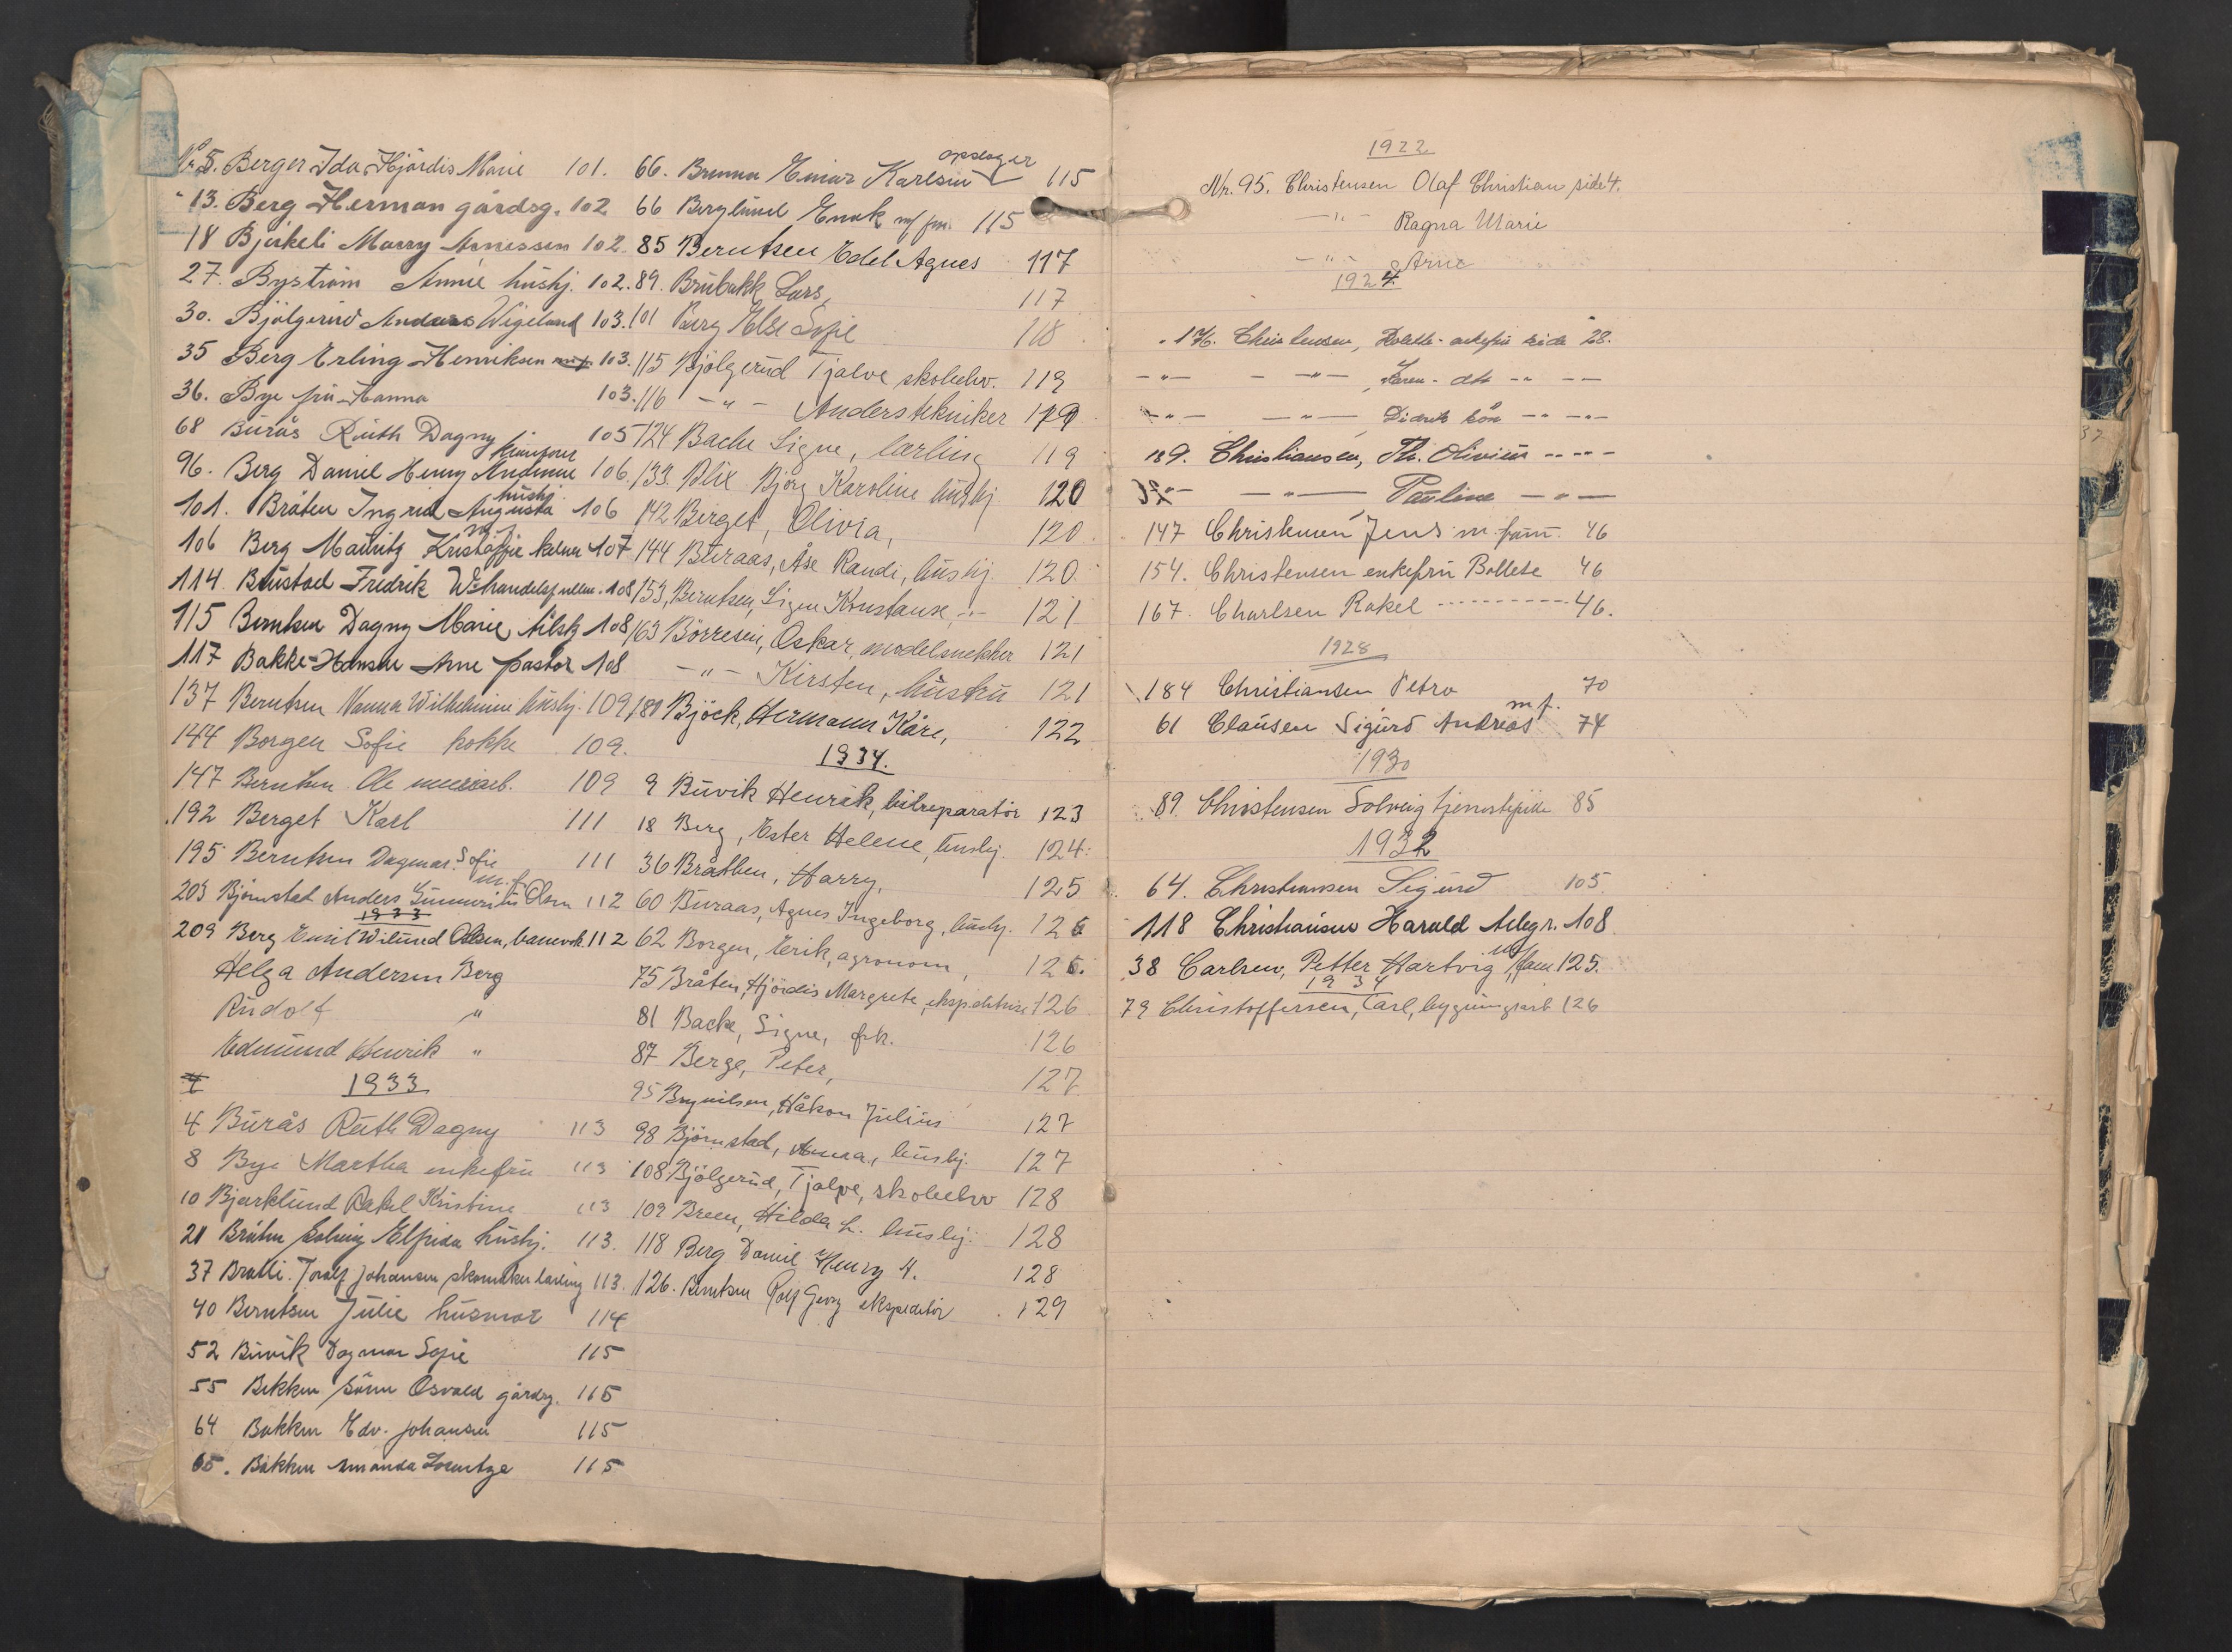 Nr. 5. Berger Ida Hjördis Marie 101.
" 13. Berg Herman gårdsg. 102
18 Bjerkeli Marry Arnessen 102.
27. Byström Annie hushj. 102.
30. Bjölgerud Anders Wigeland 103.
35 Berg Erling Henriksen 103.
36. Bye fru Hanna 103.
68 Burås Ruth Dagny 105
96. Berg Daniel Henry Andenne 106
101. Bråten Ingrid Augusta hushj. 106
106 Berg Mauritz Kristoffie kelner m. f. 107
114. Bustad Fredrik W. handelsfullm. 108
115 Berntsen Dagny Marie, 108
117 Bakke-Hansen Arne pastor 108
137 Berntsen Nanna Wilhelmine hushj. 109
144 Borgen Sofie kokke 109.
147 Berntsen Ole 109
192 Berget Karl 111
195 Berntsen Dagmar Sofie 111
203 Björnstad Anders Olsen m. f. 112
1933
209 Berg Emil Wilund Olsen, banevok. 112
Helga Andersen Berg
Rudolf "
Edmund Henrik "
1933
4 Burås Ruth Dagny 113
8 Bye Martha enkefru 113
10 Bjerklund Rakel Kristine 113
21 Bråten Solveig Elfrida hushj. 113.
37 Bratli Toralf Johansen skomakerlærling 113.
40 Berntsen Julie husmor 114
52 Buvik Dagmar Sofie 115
55 Bekken Osvald gårdsg. 115
64 Bakken Edv. Johansen 115
65. Bakken Amanda Lorentze 115
66. Brenna Einar Karlsen oppdager 115
66 Berglund Enok m/ fm. 115
85 Berntsen Edel Agnes 117
89. Brubakk Lars, 117
101 Berg Else Sofie 118
115 Bjölgerud Tjalve skoleelev. 119
116 - " - Anders tekniker 119
124 Bache Signe, lærling 119
133. Blix Bjørg Karoline hushj 120
142 Berget, Olivia, 120
144 Buraas, Åse Randi, hushj. 120.
153, Berntsen, Signe Konstanse, - " - 121
163 Börresen, Oskar, modelsnekker 121
- " - Kirsten, hustru 121
180 Bjöck, Hermann Kåre, 122
1934.
9 Buvik Henrik, bilreparatör 123
18 Berg, Ester Helene, hushj. 124.
36 Bråthen, Harry, 125
60 Buraas, Agnes Ingeborg, hushj. 126
62 Borgen, Erik, agronom, 126.
75 Bråten, Hjördis Margrete, ekspeditrise 126
81 Backe, Signe, frk. 126
87 Berge, Peter, 127
95 Brynilsen, Håkon Julius 127
98 Björnstad, Anna, hushj. 127
108 Bjölgerud, Tjalve, skoleelev 128
109 Breen, Hilda L. hushj. 128
118 Berg Daniel Henry A. 128
126. Berntsen Rolf Georg ekspeditör 129
1922
Nr. 95. Christensen Olaf Christian side 4.
- " - Ragna Marie
- " - Arne
1924.
176. Christensen, Bolette - enkefru side 28.
- " - - " - Karen - dtr - " - - -
- " - - " - Didrik sön - " - - " -
189. Christiansen, Th. Olivius - " - " -
- " - - " - Pauline - " -
147 Christensen Jens m. fam. 46
154. Christensen enkefru Bollete 46
167. Charlsen Rakel 46.
1928
184 Christiansen Petra 70
61 Clausen Sigurd Andreas m. f. 74
1930
89. Christensen Solveig tjenestepike 85
1932
64. Christiansen Sigurd 105.
118 Christiansen Harald telegr. 108
38 Carlsen, Petter Hartvig m/fam. 125.
1934
79 Christoffersen, Carl, bygningsarb 126